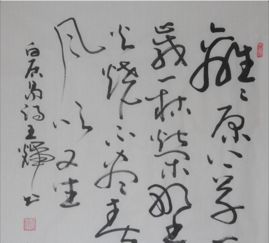 離々原上草一
歲一枯榮野
火燒不盡春
風吹又生
白居易詩王輝书